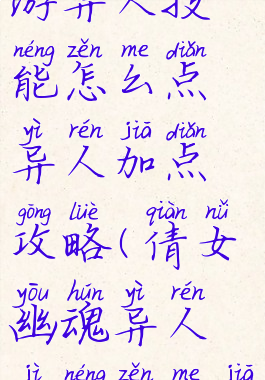 游异人技
néng zěn me diǎn
能怎么点
yì rén jiā diǎn
异人加点
gōng lüè qiàn nǚ
攻略(倩女
yōu hún yì rén
幽魂异人
jì néng zěn me jiā